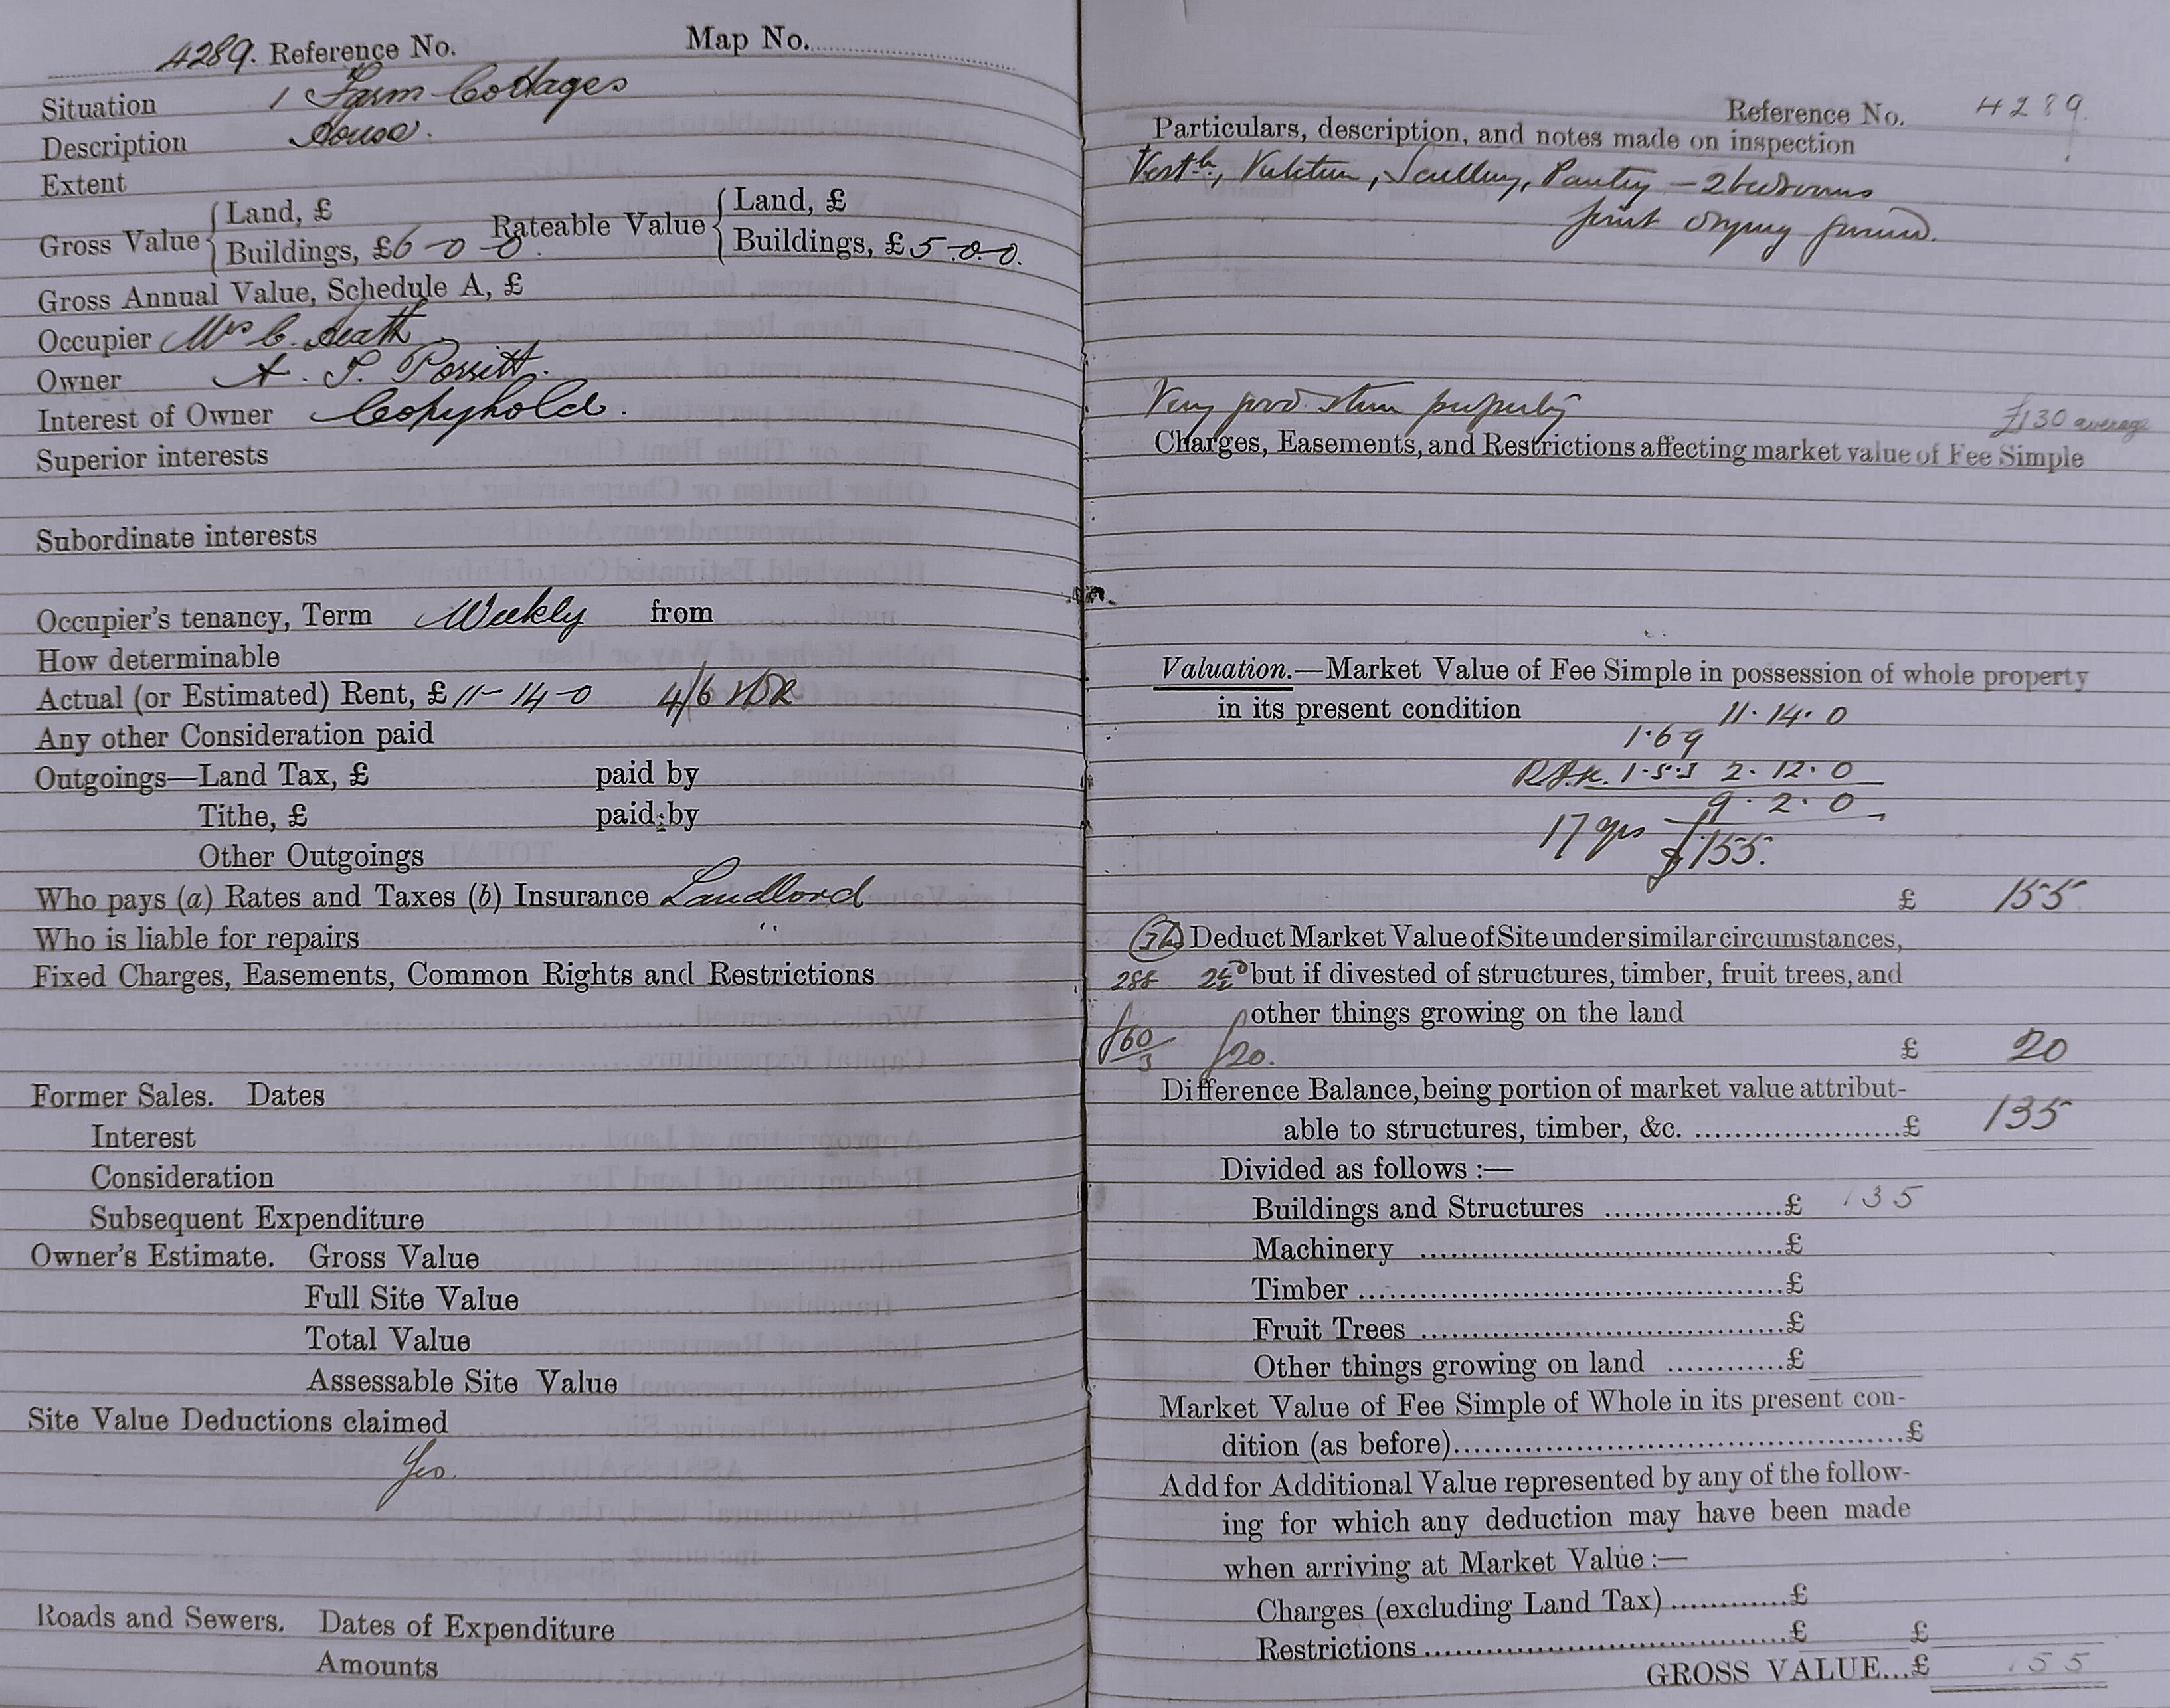 4289. Reference No. Map No.
Situation 1 Farm Cottages
Description House.
Extent
Gross Value { Land, £
Buildings, £ 6-0-0.
Rateable Value { Land, £
Buildings, £ 5-0-0.
Gross Annual Value, Schedule A, £
Occupier Mrs C. Heath
Owner A. P. Porritt.
Interest of Owner Copyhold.
Superior interests
Subordinate interests
Occupier's tenancy, Term Weekly from
How determinable
Actual (or Estimated) Rent, £ 11-14-0 4/6
Any other Consideration paid
Outgoings—Land Tax, £ paid by
Tithe, £ paid by
Other Outgoings
Who pays (a) Rates and Taxes (b) Insurance Landlord
Who is liable for repairs "
Fixed Charges, Easements, Common Rights and Restrictions
Former Sales. Dates
Interest
Consideration
Subsequent Expenditure
Owner's Estimate. Gross Value
Full Site Value
Total Value
Assessable Site Value
Site Value Deductions claimed
Yes.
Roads and Sewers. Dates of Expenditure
Amounts
Reference No. 4289.
Particulars, description, and notes made on inspection
Scullery, Pantry — 2 bedrooms
joint drying ground.
Very good stone property
£130 average
Charges, Easements, and Restrictions affecting market value of Fee Simple
Valuation.—Market Value of Fee Simple in possession of whole property
in its present condition 11. 14. 0
1.6.9
1.5.3 2. 12. 0
9. 2. 0
17 yrs £155.
£ 155
Deduct Market Value of Site under similar circumstances,
288 but if divested of structures, timber, fruit trees, and
other things growing on the land
£60/3 £20. £ 20
Difference Balance, being portion of market value attribut-
able to structures, timber, &c. ....................£ 135
Divided as follows :—
Buildings and Structures ..................£ 135
Machinery ....................................£
Timber ..........................................£
Fruit Trees ....................................£
Other things growing on land ............£
Market Value of Fee Simple of Whole in its present con-
dition (as before)............................................£
Add for Additional Value represented by any of the follow-
ing for which any deduction may have been made
when arriving at Market Value :—
Charges (excluding Land Tax) ............£
Restrictions ......................................£ £
GROSS VALUE...£ 155